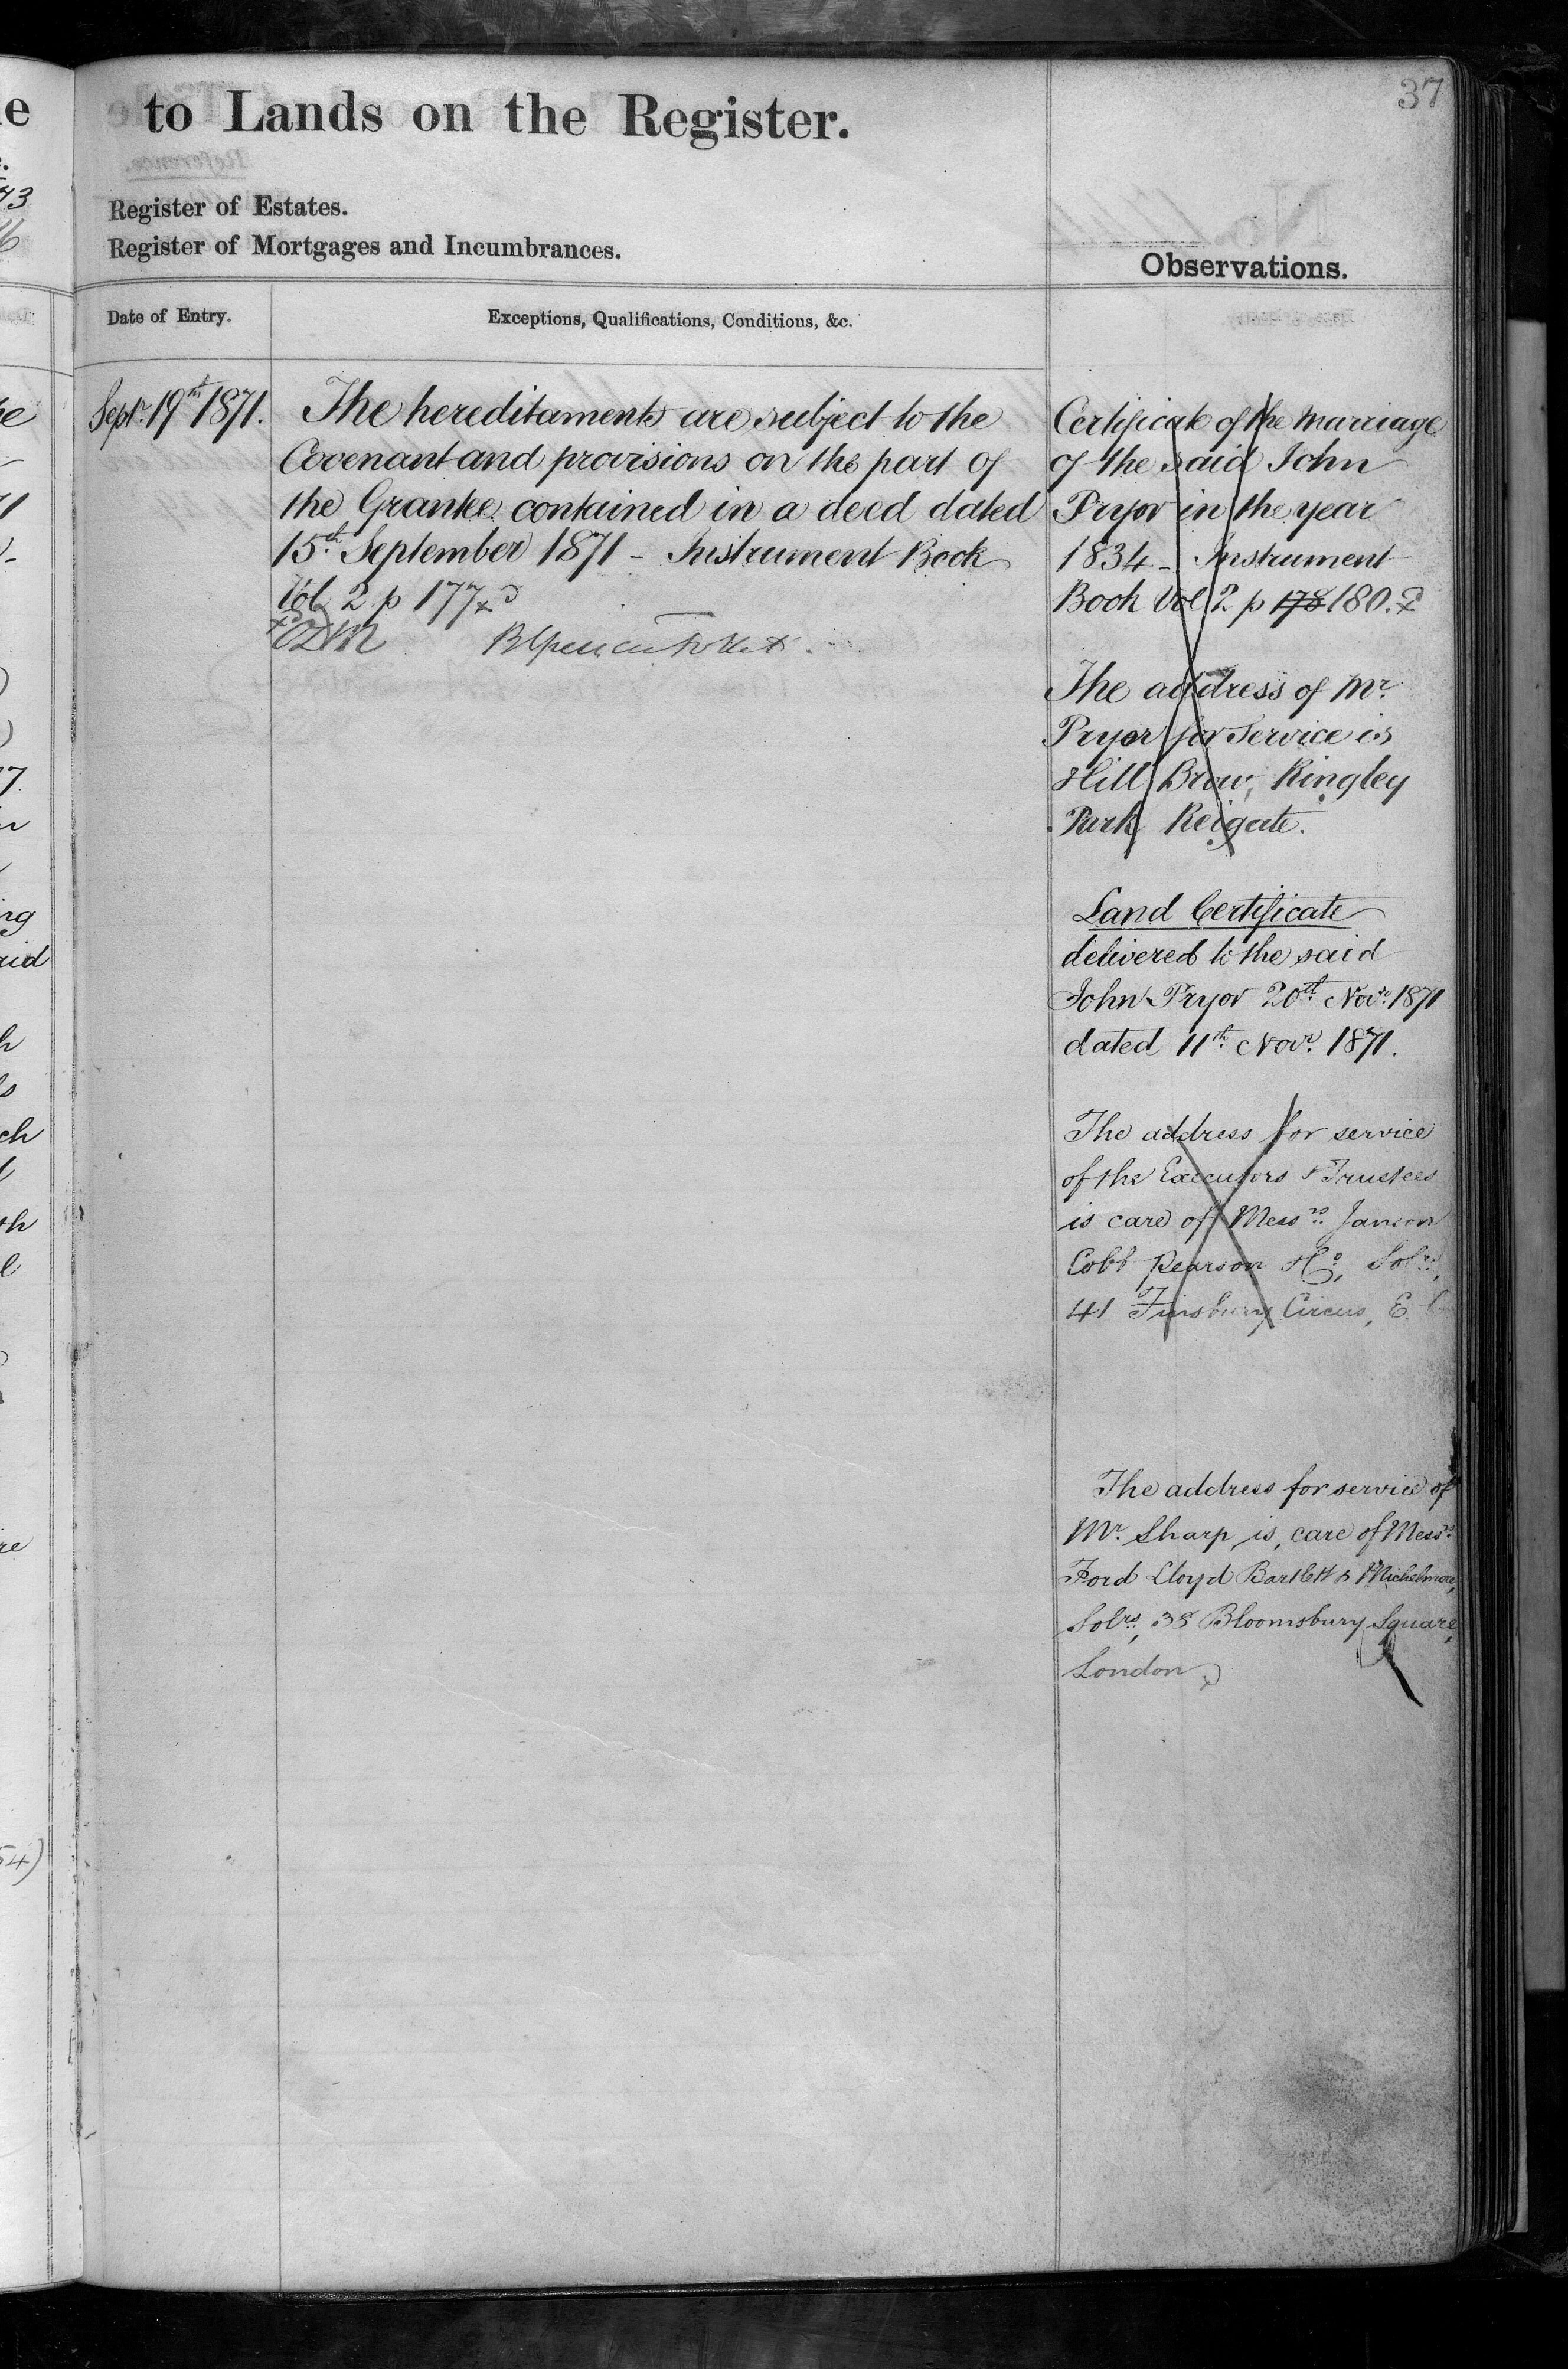 37
to Lands on the Register.
Register of Estates.
Register of Mortgages and Incumbrances.
Observations.
Date of Entry.
Exceptions, Qualifications, Conditions, &c.
Septr. 19th 1871.
The hereditaments are subject to the
Covenant and provisions on the part of
the Grantee contained in a deed dated
15th September 1871 - Instrument Book
Vol 2 p 177
Certificate of the Marriage
of the said John
Pryor in the year
1834 - Instrument
Book Vol 2 p 178 180.
The address of Mr.
Pryor for Service is
Hill Brow, Ringley
Park Reigate.
Land Certificate
delivered to the said
John Pryor 20th Novr. 1871
dated 11th Novr. 1871.
The address for service
of the Executors & Trustees
is care of Messrs. Janson
Cobb Pearson & Co, Solrs,
41 Finsbury Circus, E.C
The address for service of
Mr. Sharp, is, care of Messrs.
Ford Lloyd Bartlett & Michelmore,
Solrs, 38 Bloomsbury Square,
London